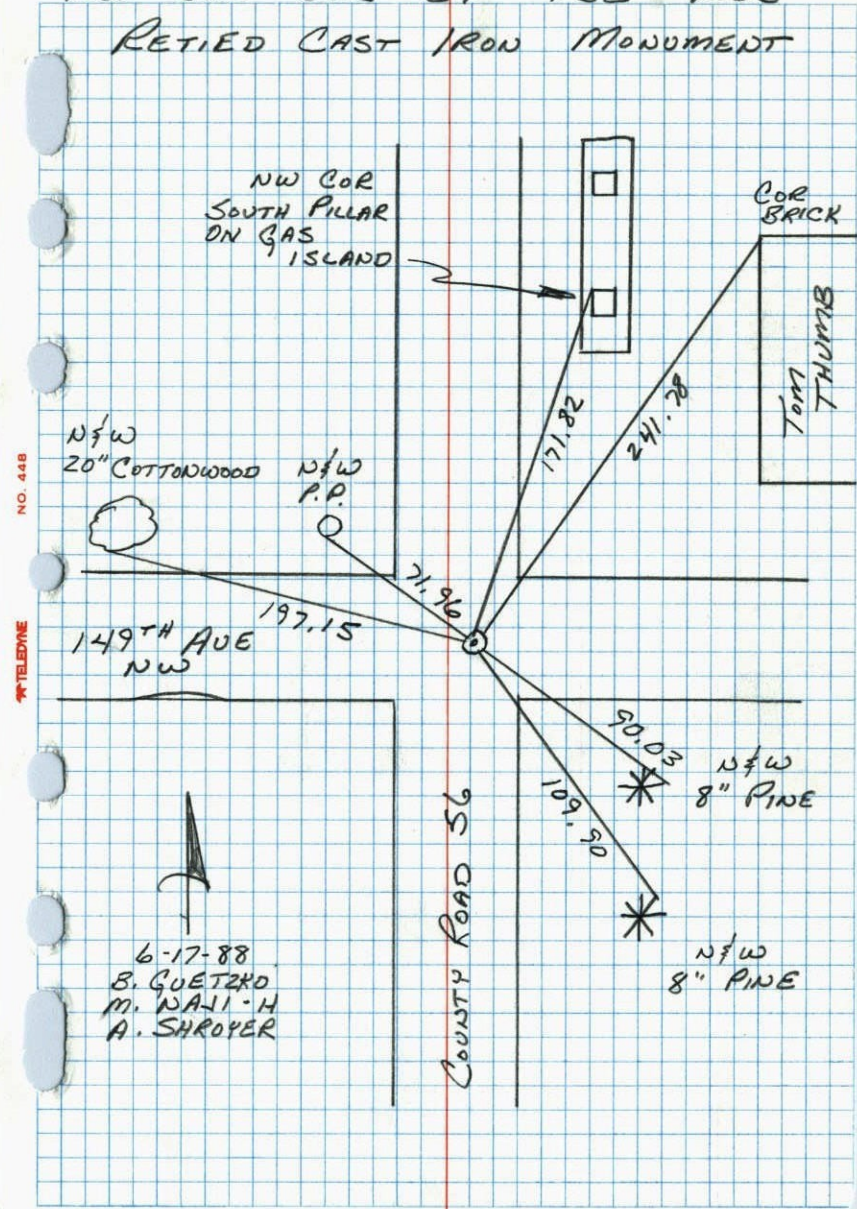 RETIED CAST IRON MONUMENT
NW COR
SOUTH PILLAR
ON GAS
ISLAND
COR
BRICK
TOM
THUMB
171.82
241.78
N&W
20" COTTONWOOD
N&W
P.P.
71.96
197.15
149TH AVE
NW
90.03
N&W
8" PINE
109.90
N&W
8" PINE
COUNTY ROAD 56
6-17-88
B. GUETZKO
M. NAJI-H
A. SHROYER
NO. 448
TELEDYNE